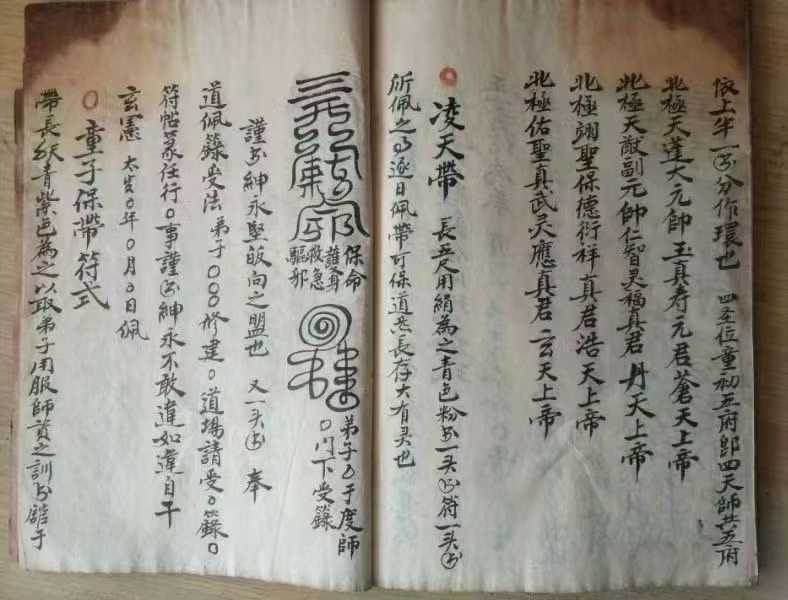 依上半一书分作環也 四圣位童初五府即四天師共五府
北極天蓬大元帥玉真寿元君蒼天上帝
北極天猷副元帥仁智灵福真君丹天上帝
北極翊聖保德衍祥真君浩天上帝
北極佑聖真武灵應真君玄天上帝
凌天帶 長五尺用絹為之青色粉书一头书符一头书
所佩之日逐日佩帶可保道炁長存大有灵也
保命
護身
救急
驅邪
弟子〇于度師
〇門下受籙
謹书紳永堅皈向之盟也 又一头书 奉
道佩籙受法弟子〇〇〇修建〇道場請受〇籙〇
符帖篆任行〇事謹书紳永不敢違如違自干
玄憲 太岁〇年〇月〇日佩
〇童子保帶符式
帶長 青紫色為之以取弟子用服師資之訓书 于